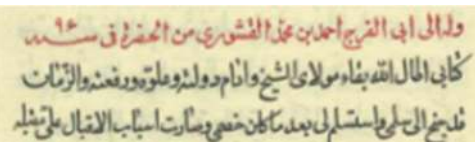 وله الى ابى الفرج احمد بن محمد القشورى من الحضرة فى سنة ٩٤
كتابى اطال الله بقاء مولاى الشيخ وادام دولته وعلوه ورفعته والزمان
قد جنح الى سلمى واستسلم لى بعد ما كان خصمى وصارت اسباب الاقبال على مقبلة